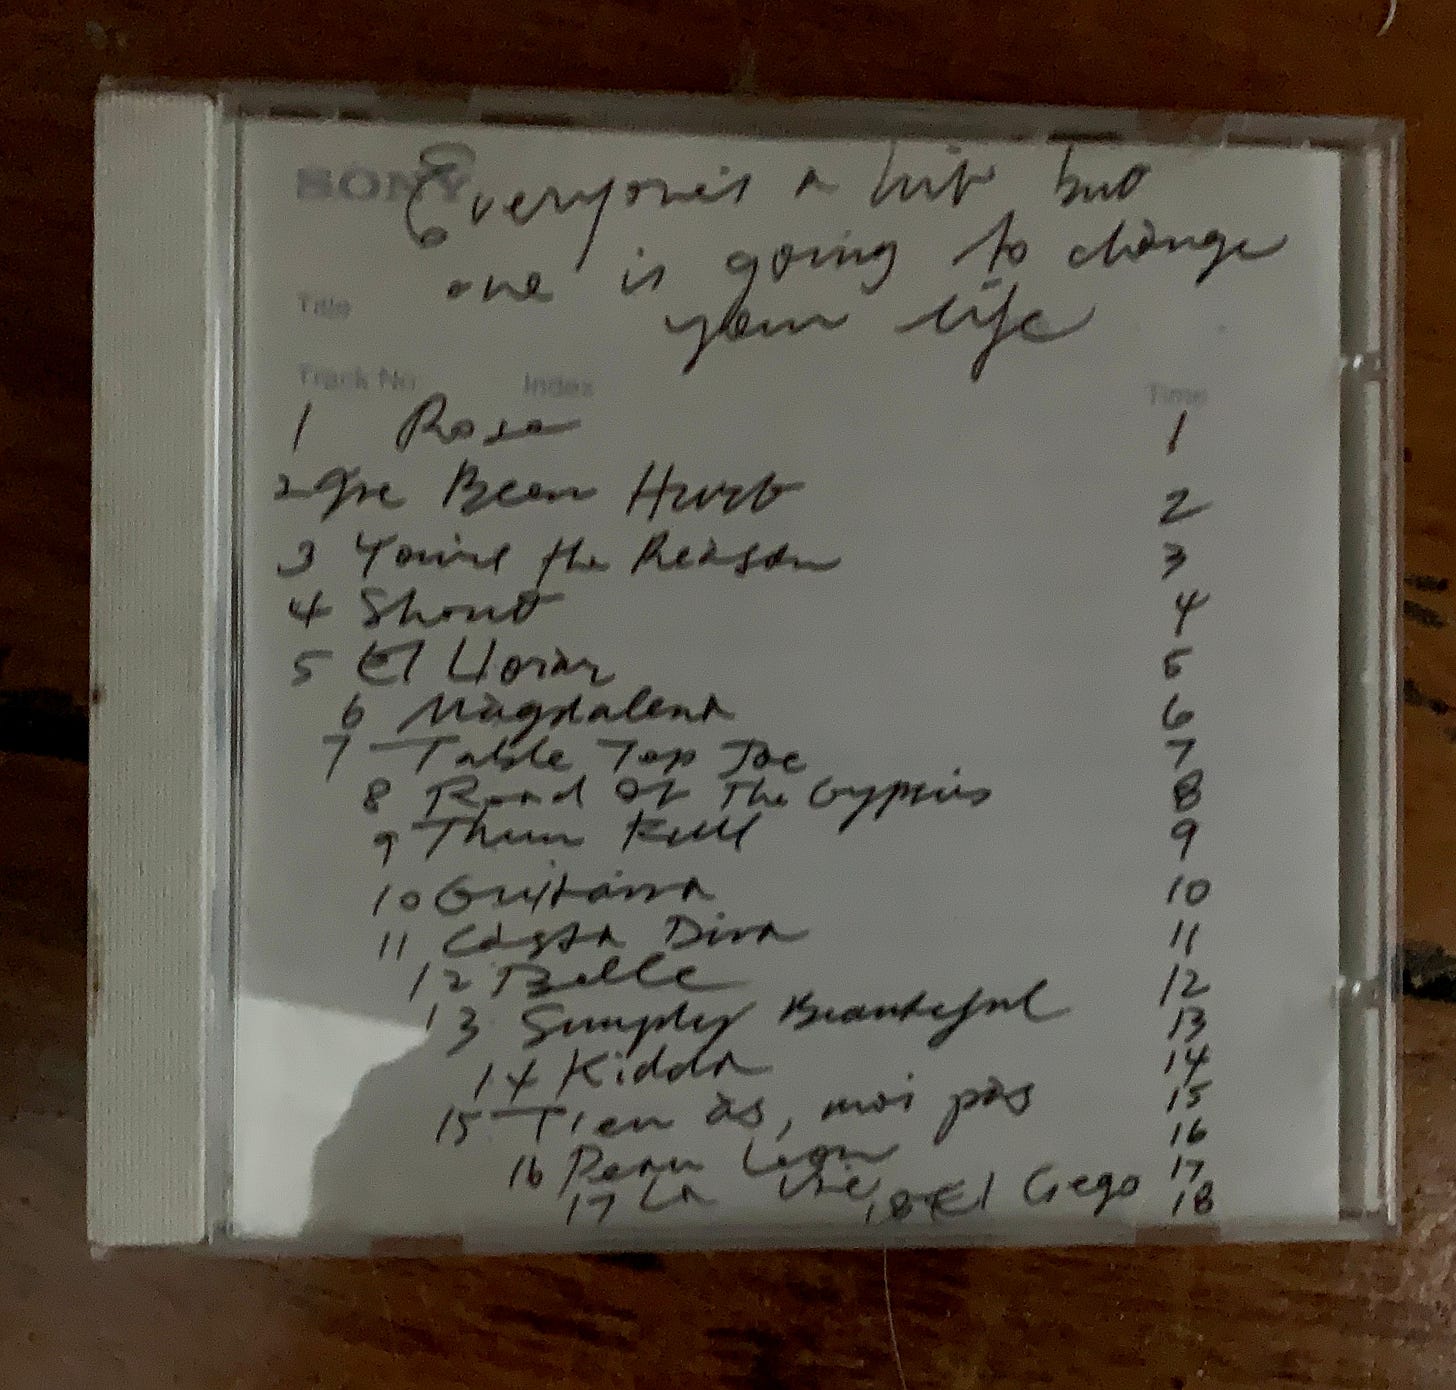 SONY
Everyone's a hit but
one is going to change
your life
Title
Track No. Index Time
1 Rosa 1
2 I've Been Hurt 2
3 You're the Reason 3
4 Shout 4
5 El Llorar 5
6 Magdalena 6
7 Table Top Joe 7
8 Road Of The Gypsies 8
9 9
10 Guitarra 10
11 Casta Diva 11
12 Belle 12
13 Simply Beautiful 13
14 Kidda 14
15 Tien as, moi pas 15
16 16
17 La Vie 17
18 El Ciego 18